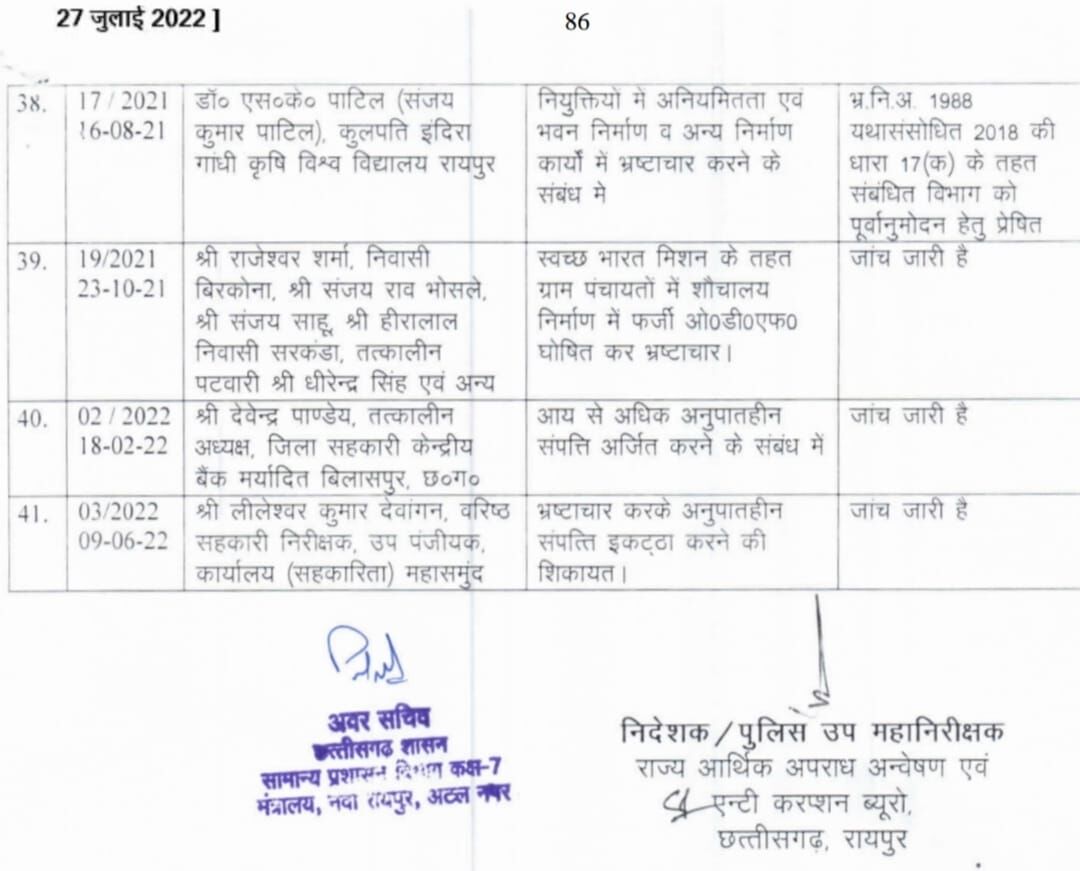 27 जुलाई 2022 ]
86
38.
17 / 2021
16-08-21
डॉ० एस०के० पाटिल (संजय
कुमार पाटिल), कुलपति इंदिरा
गांधी कृषि विश्व विद्यालय रायपुर
नियुक्तियों में अनियमितता एवं
भवन निर्माण व अन्य निर्माण
कार्यों में भ्रष्टाचार करने के
संबंध मे
भ्र.नि.अ. 1988
यथासंसोधित 2018 की
धारा 17(क) के तहत
संबंधित विभाग को
पूर्वानुमोदन हेतु प्रेषित
39.
19/2021
23-10-21
श्री राजेश्वर शर्मा, निवासी
बिरकोना, श्री संजय राव भोसले,
श्री संजय साहू, श्री हीरालाल
निवासी सरकंडा, तत्कालीन
पटवारी श्री धीरेन्द्र सिंह एवं अन्य
स्वच्छ भारत मिशन के तहत
ग्राम पंचायतों में शौचालय
निर्माण में फर्जी ओ0डी0एफ0
घोषित कर भ्रष्टाचार।
जांच जारी है
40.
02 / 2022
18-02-22
श्री देवेन्द्र पाण्डेय, तत्कालीन
अध्यक्ष, जिला सहकारी केन्द्रीय
बैंक मर्यादित बिलासपुर, छ०ग०
आय से अधिक अनुपातहीन
संपत्ति अर्जित करने के संबंध में
जांच जारी है
41.
03/2022
09-06-22
श्री लीलेश्वर कुमार देवांगन, वरिष्ठ
सहकारी निरीक्षक, उप पंजीयक,
कार्यालय (सहकारिता) महासमुंद
भ्रष्टाचार करके अनुपातहीन
संपत्ति इकट्ठा करने की
शिकायत।
जांच जारी है
अवर सचिव
छत्तीसगढ शासन
सामान्य प्रशासन विभाग कक्ष-7
मंत्रालय, नवा रायपुर, अटल नगर
निदेशक / पुलिस उप महानिरीक्षक
राज्य आर्थिक अपराध अन्वेषण एवं
एन्टी करप्शन ब्यूरो,
छत्तीसगढ़, रायपुर